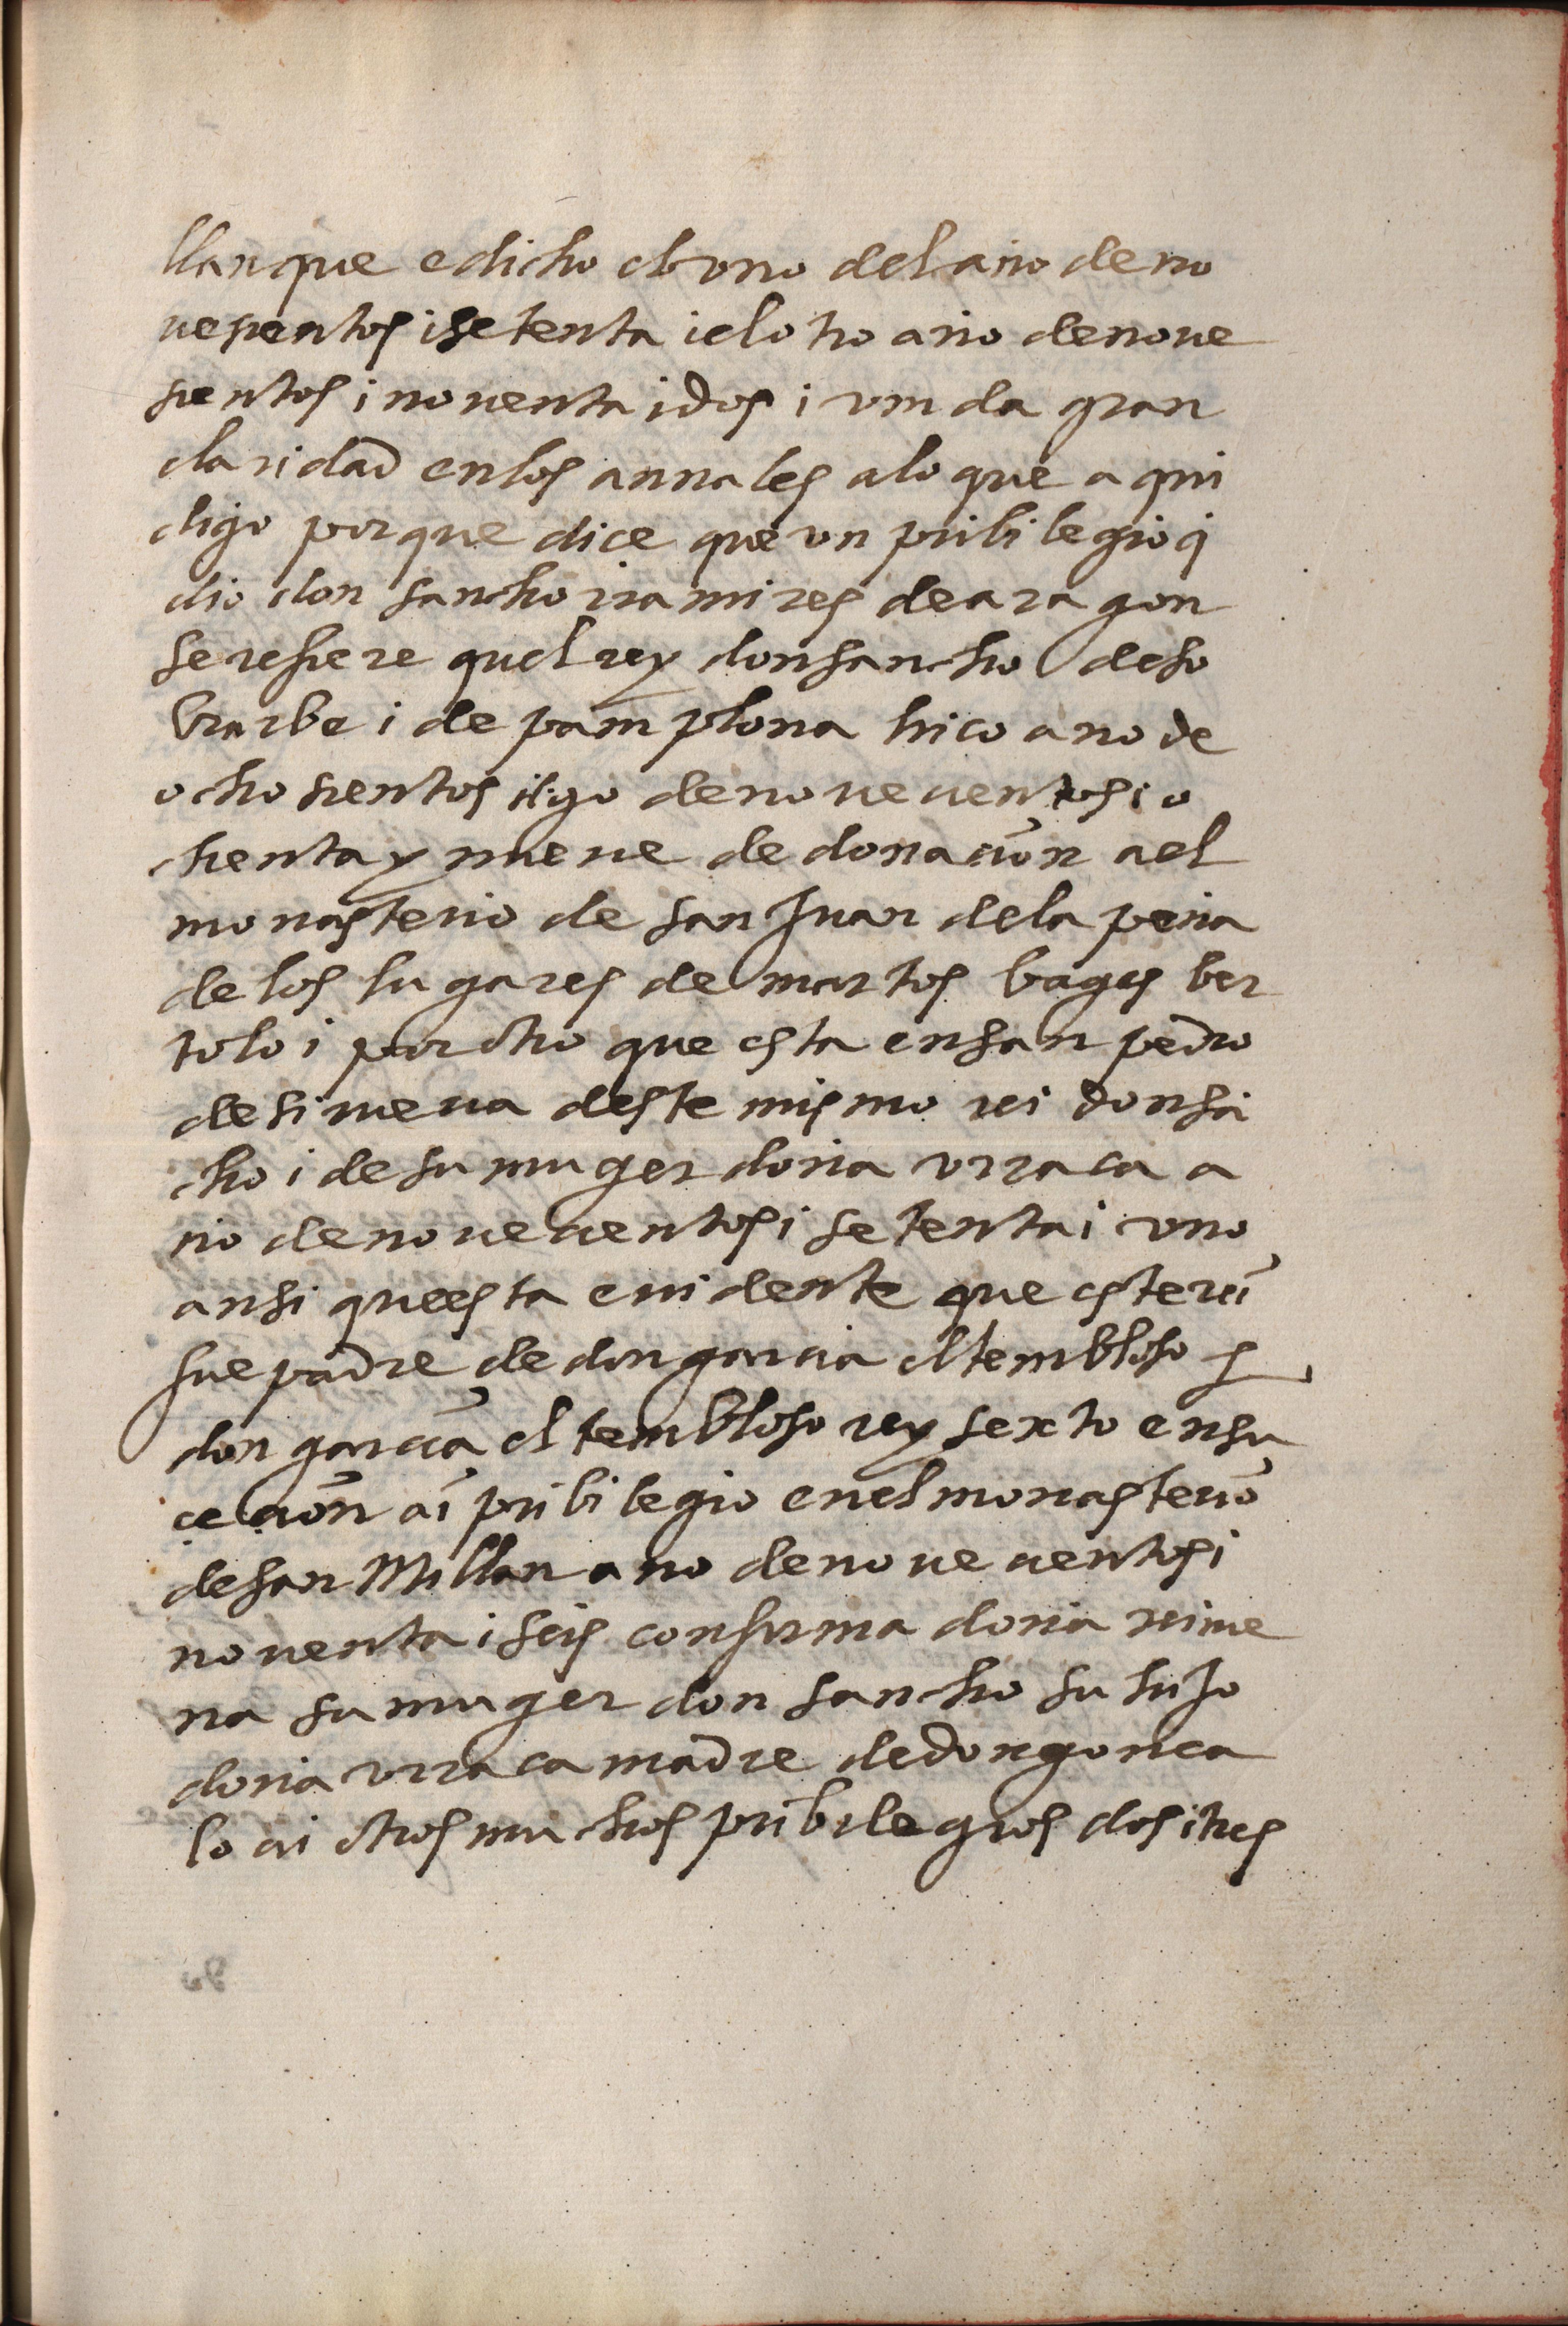 llan que e dicho el vno del año de no
uesientos i setenta i el otro año de noue
sientos i nouenta i dos i vn da gran
claridad en los annales a lo que a qui
digo porque dice que vn pribilegio q
dio don sancho rramires de aragon
se refiere quel rey don sancho de so
brarbe i de pamplona hico ano de
ocho sientos digo de noueçentos i o
chenta y nueue de donacion a el
monasterio de san Juan de la peña
de los lugares de martos bages ber
tolo i por otro que esta en san pedro
de simeua deste mismo rei don sā
cho i de su muger doña vrraca a
ño de noueçentos i setenta i vno
ansi que esta euidente que este rei
fue padre de don garcia el tembloso
don garcia el tembloso rey sexto en su
cecion ai pribilegio en el monasterio
de san Millan ano de noueçentos i
nouenta i seis confirma doña xime
na su muger don sancho su hijo
doña vrraca madre de don gonca
lo ai otros muchos pribilegios dos i tres